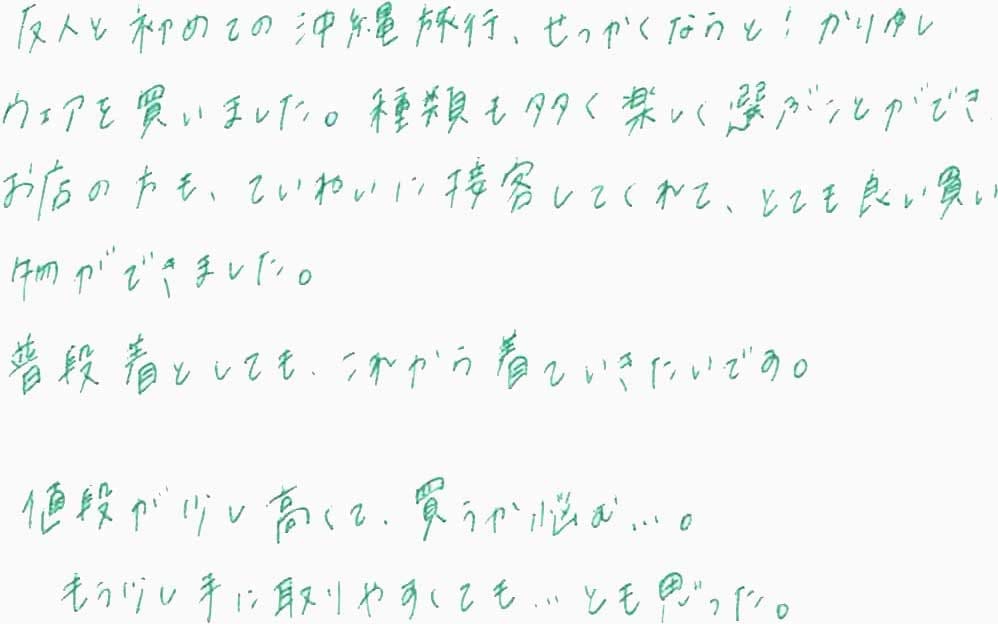 友人と初めての沖縄旅行、せっかくならと!かりゆし
ウェアを買いました。種類も多く楽しく選ぶことができ
お店の方も、ていねいに接客してくれて、とても良い買い
物ができました。
普段着としても、これから着ていきたいです。
値段が少し高くて、買うか悩む…。
もう少し手に取りやすくても…とも思った。